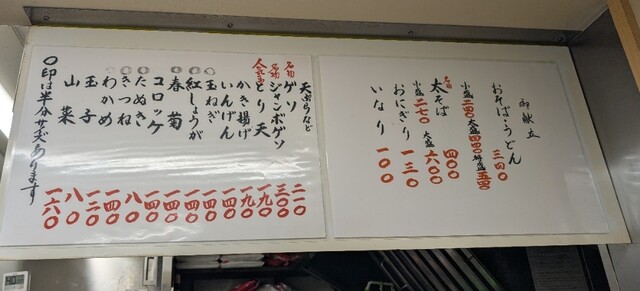 御献立
おそば・うどん 三四〇
小盛 二四〇 大盛 四四〇 特盛 五四〇
名物 太そば 四〇〇
小盛 二七〇 大盛 六〇〇
おにぎり 一三〇
いなり 一〇〇
天ぷらなど
名物 ゲソ 二一〇
名物 ジャンボゲソ 三〇〇
人気 とり天 一九〇
かき揚げ 一九〇
いんげん 一四〇
○玉ねぎ 一四〇
○紅しょうが 一四〇
○春菊 一四〇
コロッケ 一四〇
○たぬき 八〇
○きつね 一四〇
○わかめ 一二〇
玉子 八〇
山菜 一六〇
○印は半分サイズあります